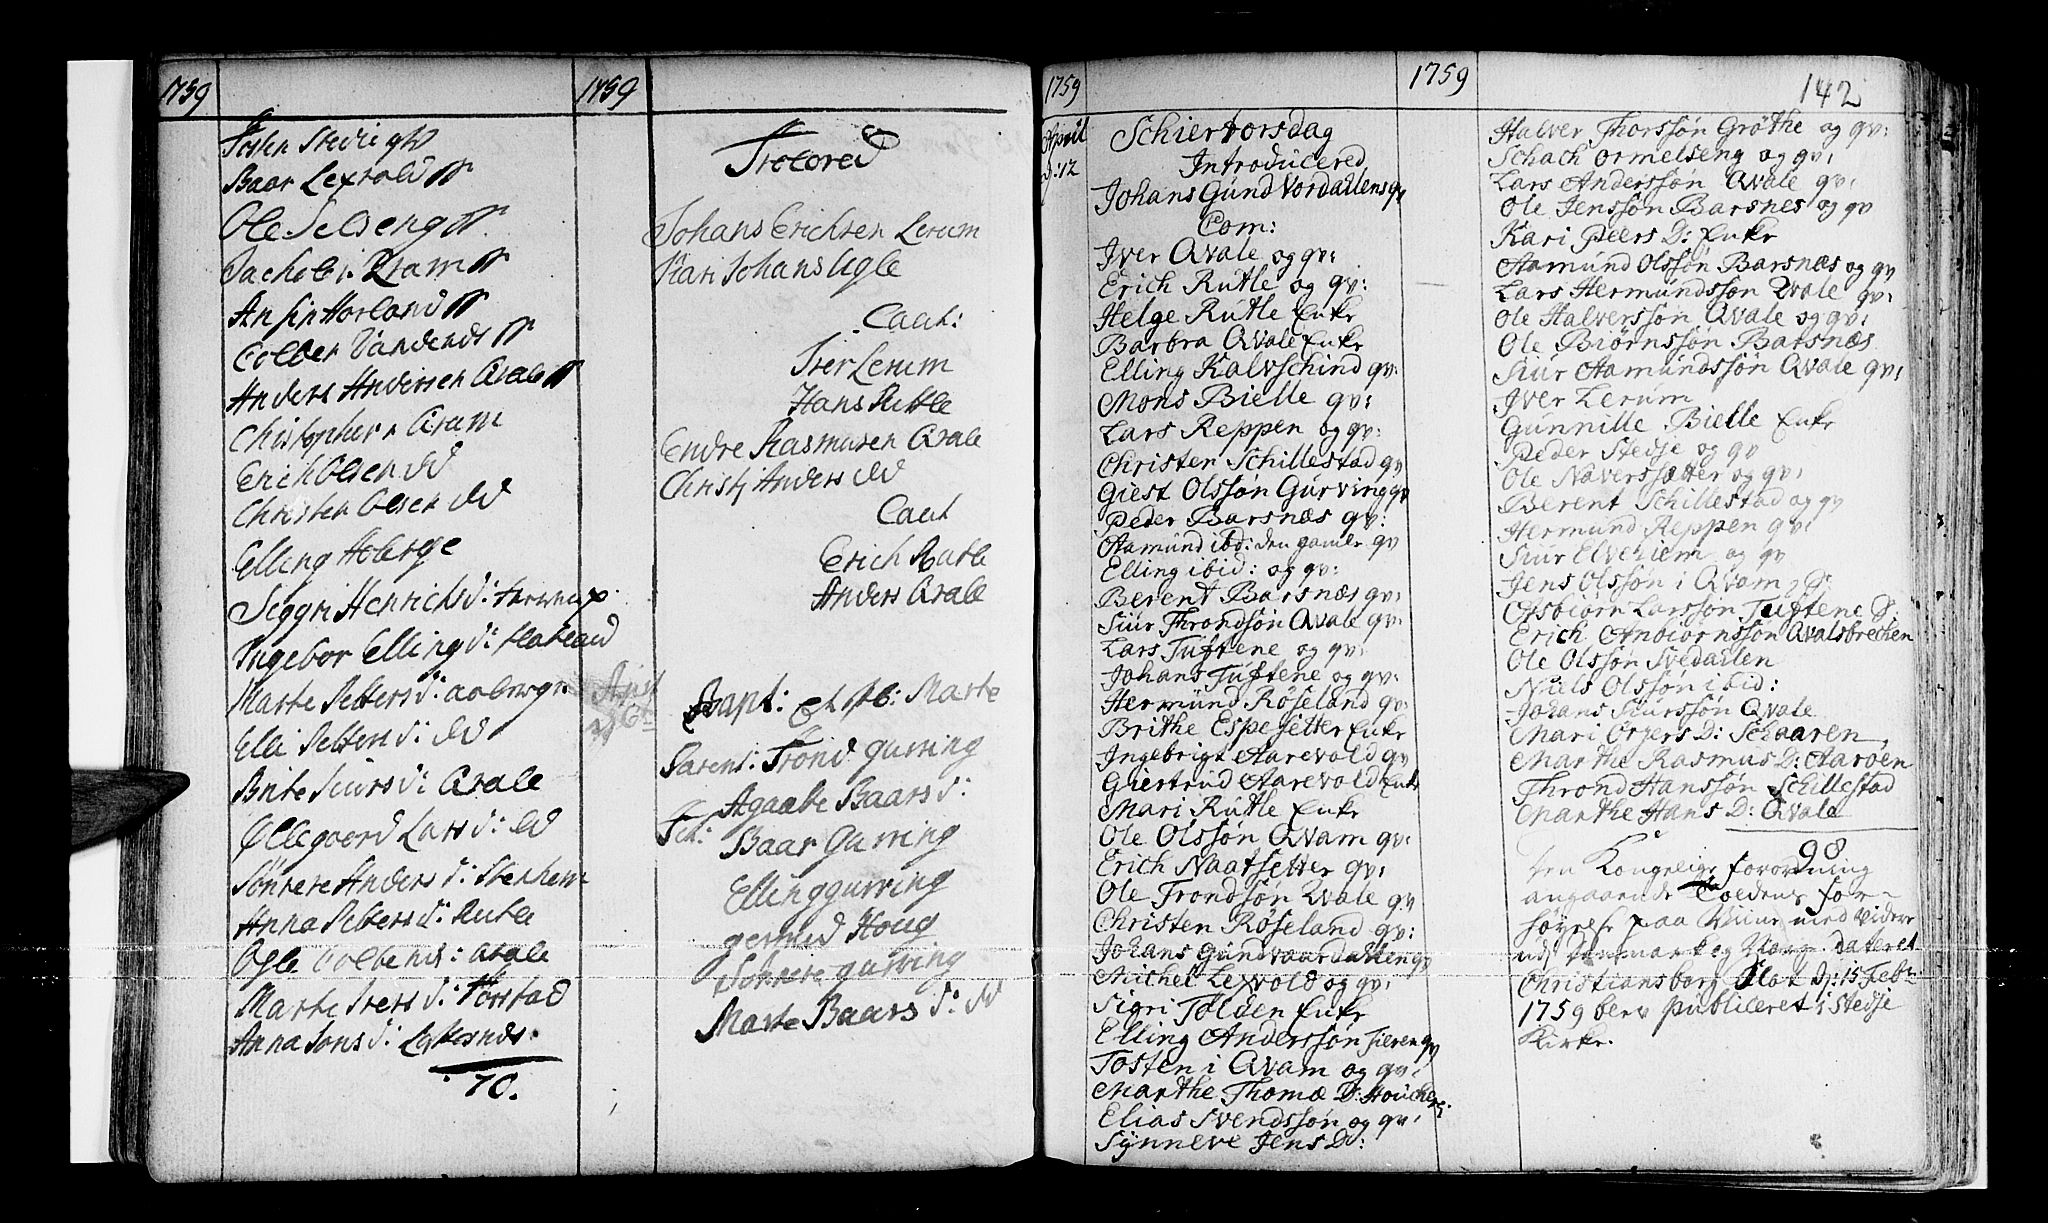 1759
Tosten Stedie
Baar Lexvold
Ole Selseng
Jachob i Kram
Ansfin Horland
Colben
Anders Andersen Qvale
Christopher Qvam
Erich Olsen dd
Christen Olsen dd
Elling Hoberge
Seggri Henrichs d:
Ingebor Elling d:
Marte Petters d:
Elli Petters d: dd
Brite Siurs d: Qvale
Øllegaard Lars d: dd
Sönneve Anders d:
Anna Petters d: Rutle
Ogle Colbens d: Qvale
Marte Ivers d:
Anna Jons d:
70.
1759
Trolored
Johans Erichsen Lerum
Kari Johans Ugle
Caut:
Iver Lerum
Hans Rutle
Endre Rasmusen Qvale
Christi Anders dd
Caut
Erich Rutle
Anders Qvale
Bapt: Marte
Parens: Trond gurving
Agaate Baars d:
Test: Baar Gurving
Elling gurving
gertrud Houg
Sönneve gurving
Marte Baars d: dd
1759
1759
142
April
D: 12
Schiertorsdag
Introducered
Johans Gundvordalens qv
Com:
Iver Qvale og qv:
Erich Rutle og qv:
Helge Rutle Enke
Barbra Qvale Enke
Elling Kalvschind qv:
Mons Bielle qv:
Lars Reppen og qv:
Christen Schillestad qv
Giest Olssøn Gurving qv
Peder Barsnæs qv:
Aamund ibd: den gamle qv
Elling ibid: og qv:
Berent Barsnæs qv:
Siur Throndssøn Qvale qv:
Lars Tuftene og qv:
Johans Tuftene og qv:
Hermund Røseland qv:
Brithe Espesetter Enke
Ingebrigt Aarevold qv:
Giertrud Aarevold Enke
Mari Rutle Enke
Ole Olssøn Qvam qv:
Erich Naatsetter qv:
Ole Trondssøn Qvale qv
Christen Røseland qv:
Johans Gundvaardallen qv
Michel Lexvold og qv:
Sigri Tølden Enke
Elling Anderssøn Fieren qv
Tosten i Qvam og qv:
Marthe Thomæ D:
Elias Svendssøn og qv:
Synneve Jens D:
Halver Thorssøn Grøthe og qv:
Schach Ormelseng og qv:
Lars Anderssøn Qvale qv:
Ole Jenssøn Barsnes og qv
Kari Peers D: Enke
Aamund Olssøn Barsnæs og qv
Lars Hermundssøn Qvale qv:
Ole Halverssøn Qvale og qv:
Ole Biørnssøn Barsnæs
Siur Aamundssøn Qvale qv:
Iver Lerum
Gunnille Bielle Enke
Peder Stedje og qv
Ole Naverssætter og qv:
Berent Schillestad og qv
Hermund Reppen qv:
Siur Elvehiem og qv
Jens Olssøn i Qvam
Asbiørn Larssøn Tuftene
Erich Anbiørnssøn Qvalsbrechen
Ole Olssøn Svedallen
Niels Olssøn ibid:
Johans Siurssøn Qvale
Mari Orgers D: Schaaren,
Marthe Rasmus D: Aarøen
Thrond Hanssøn Schillestad
Marthe Hans D: Qvale
98
Den Kongelige forordning
angaaende Toldens for-
høyelse paa Viine med videre
udj Danmark og Norge dateret
Christiansborg Slot D: 15 Febr
1759 blev publiceret i Stedje
Kirke.